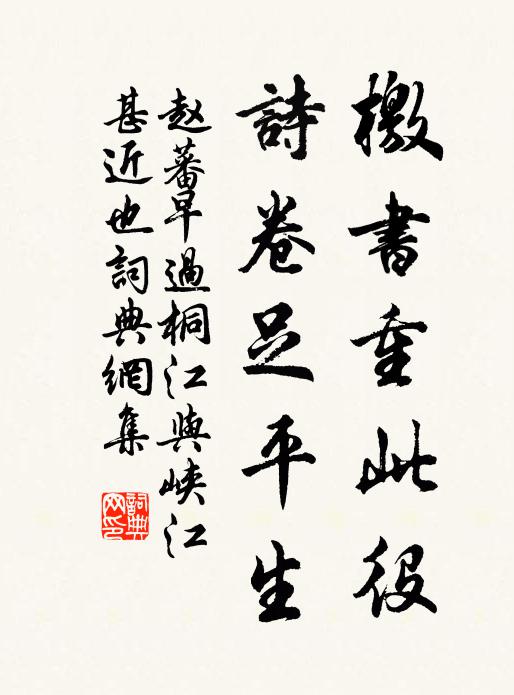 檄書重此役
詩卷足平生
赵蕃早過桐江與峽江
甚近也詞典網集
詞典網印